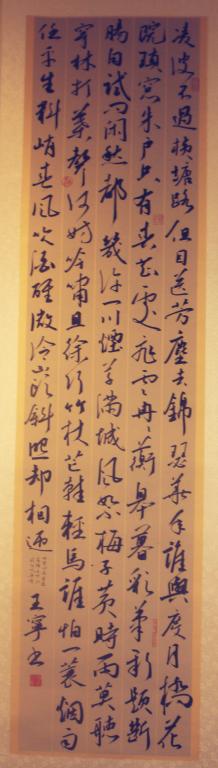 凌波不過橫塘路但目送芳塵去錦瑟華年誰與度月橋花
院瑣窓朱户只有春知處飛雲冉々蘅皋暮彩筆新題斷
腸句試問閑愁都幾許一川煙草滿城風絮梅子黃時雨莫聽
穿林打葉聲何妨吟嘯且徐行竹杖芒鞋輕馬誰怕一蓑烟雨
任平生料峭春風吹酒醒微冷山頭斜照却相迎 王寧書